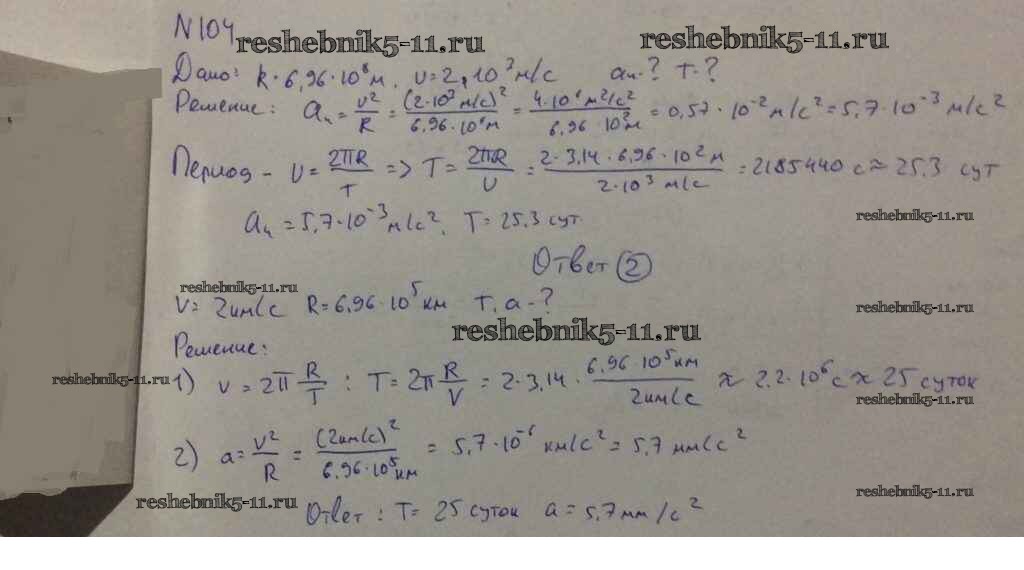 N 104
reshebnik5-11.ru reshebnik5-11.ru
Дано: R = 6,96·10⁸ м, υ = 2·10³ м/с aₙ-? T-?
Решение: aₙ = υ²/R = (2·10³ м/с)²/6,96·10⁸ м = 4·10⁶ м²/с²/6,96·10⁸ м = 0,57·10⁻² м/с² = 5,7·10⁻³ м/с²
Период - υ = 2πR/T => T = 2πR/υ = 2·3,14·6,96·10² м/2·10³ м/с = 2185440 с ≈ 25,3 сут
aₙ = 5,7·10⁻³ м/с², T = 25,3 сут.
reshebnik5-11.ru
Ответ (2)
reshebnik5-11.ru
V = 2км/с R = 6,96·10⁵ км T, a-?
reshebnik5-11.ru
reshebnik5-11.ru
Решение:
reshebnik5-11.ru
1) v = 2π R/T : T = 2π R/V = 2·3,14· 6,96·10⁵ км/2км/с ≈ 2.2·10⁶ с ≈ 25 суток
reshebnik5-11.ru
2) a = V²/R = (2км/с)²/6,96·10⁵ км = 5,7·10⁻⁶ км/с² = 5,7 мм/с²
reshebnik5-11.ru
reshebnik5-11.ru
Ответ: T = 25 суток a = 5,7 мм/с²